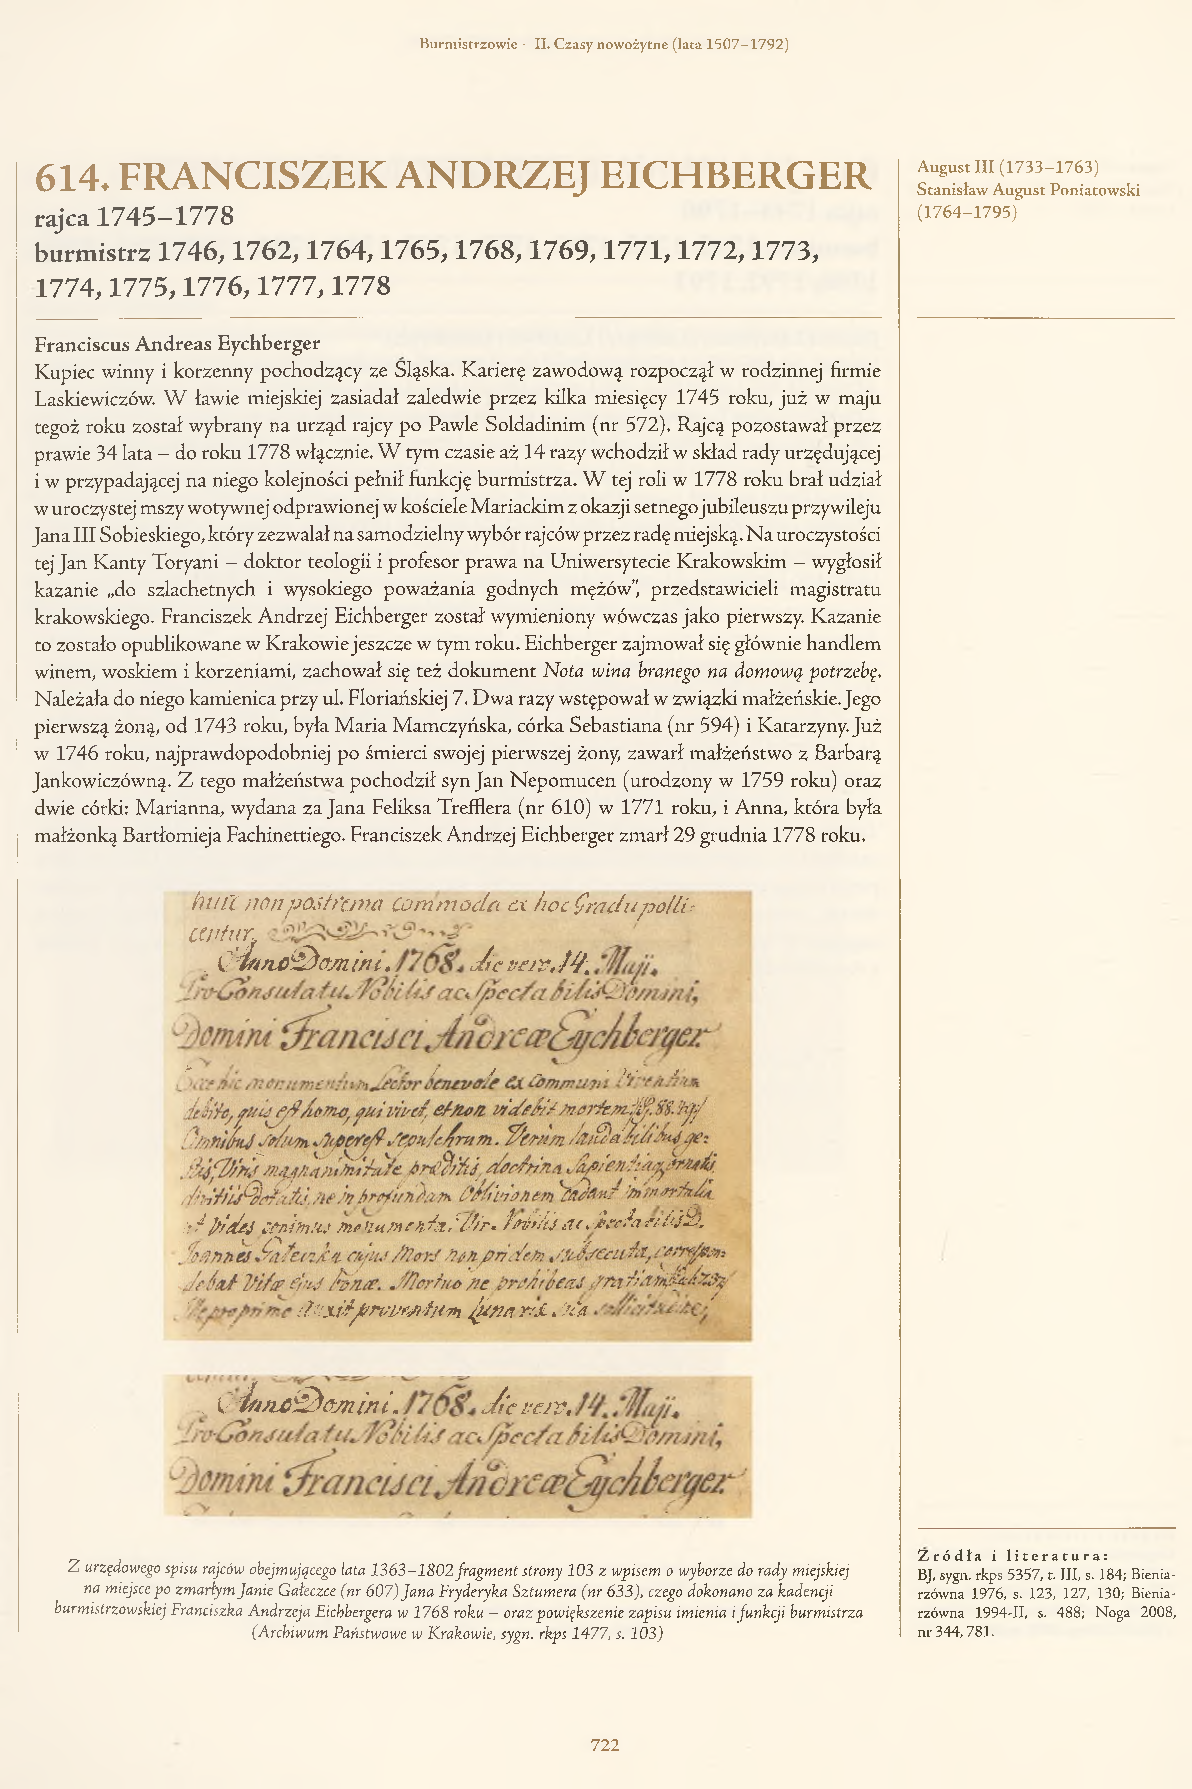 Burmistrzowie · II. Czasy nowożytne (lata 1507–1792)
614. FRANCISZEK ANDRZEJ EICHBERGER
rajca 1745–1778
burmistrz 1746, 1762, 1764, 1765, 1768, 1769, 1771, 1772, 1773,
1774, 1775, 1776, 1777, 1778
August III (1733–1763)
Stanisław August Poniatowski
(1764–1795)
Franciscus Andreas Eychberger
Kupiec winny i korzenny pochodzący ze Śląska. Karierę zawodową rozpoczął w rodzinnej firmie
Laskiewiczów. W ławie miejskiej zasiadał zaledwie przez kilka miesięcy 1745 roku, już w maju
tegoż roku został wybrany na urząd rajcy po Pawle Soldadinim (nr 572). Rajcą pozostawał przez
prawie 34 lata – do roku 1778 włącznie. W tym czasie aż 14 razy wchodził w skład rady urzędującej
i w przypadającej na niego kolejności pełnił funkcję burmistrza. W tej roli w 1778 roku brał udział
w uroczystej mszy wotywnej odprawionej w kościele Mariackim z okazji setnego jubileuszu przywileju
Jana III Sobieskiego, który zezwalał na samodzielny wybór rajców przez radę miejską. Na uroczystości
tej Jan Kanty Toryani – doktor teologii i profesor prawa na Uniwersytecie Krakowskim – wygłosił
kazanie „do szlachetnych i wysokiego poważania godnych mężów”, przedstawicieli magistratu
krakowskiego. Franciszek Andrzej Eichberger został wymieniony wówczas jako pierwszy. Kazanie
to zostało opublikowane w Krakowie jeszcze w tym roku. Eichberger zajmował się głównie handlem
winem, woskiem i korzeniami, zachował się też dokument Nota wina branego na domową potrzebę.
Należała do niego kamienica przy ul. Floriańskiej 7. Dwa razy wstępował w związki małżeńskie. Jego
pierwszą żoną, od 1743 roku, była Maria Mamczyńska, córka Sebastiana (nr 594) i Katarzyny. Już
w 1746 roku, najprawdopodobniej po śmierci swojej pierwszej żony, zawarł małżeństwo z Barbarą
Jankowiczówną. Z tego małżeństwa pochodził syn Jan Nepomucen (urodzony w 1759 roku) oraz
dwie córki: Marianna, wydana za Jana Feliksa Trefflera (nr 610) w 1771 roku, i Anna, która była
małżonką Bartłomieja Fachinettiego. Franciszek Andrzej Eichberger zmarł 29 grudnia 1778 roku.
non postrema commoda ex hoc Gradu polli-
centur.
Anno Domini. 1768. die vero. 14. Maji.
Pro Consulatu Nobilis ac Spectabilis Domini,
Domini Francisci Andreæ Eychberger.
hic monumentum Lector benevole ex Communi
debito, quis est homo, qui vivet, et non videbit mortem
Omnibus solum superest sepulchrum. Verum laudabilibus ge-
stis, Viris magnanimitate præditis, doctrina Sapientiaq ornatis,
divitiis dotatis, ne in profundam Oblivionem cadant immortalia
ut Vides ponimus monumenta. Vir. Nobilis ac Spectabilis D.
Joannes Gałeczka cujus Mors non pridem subsecuta, correspon-
debat Vitæ ejus bonæ. Mortuo ne prohibeas gratiam
proventum
Anno Domini. 1768. die vero. 14. Maji.
Pro Consulatu Nobilis ac Spectabilis Domini,
Domini Francisci Andreæ Eychberger.
Z urzędowego spisu rajców obejmującego lata 1363–1802 fragment strony 103 z wpisem o wyborze do rady miejskiej
na miejsce po zmarłym Janie Gałeczce (nr 607) Jana Fryderyka Sztumera (nr 633), czego dokonano za kadencji
burmistrzowskiej Franciszka Andrzeja Eichbergera w 1768 roku – oraz powiększenie zapisu imienia i funkcji burmistrza
(Archiwum Państwowe w Krakowie, sygn. rkps 1477, s. 103)
Źródła i literatura:
BJ, sygn. rkps 5357, t. III, s. 184; Bienia-
rzówna 1976, s. 123, 127, 130; Bienia-
rzówna 1994-II, s. 488; Noga 2008,
nr 344, 781.
722